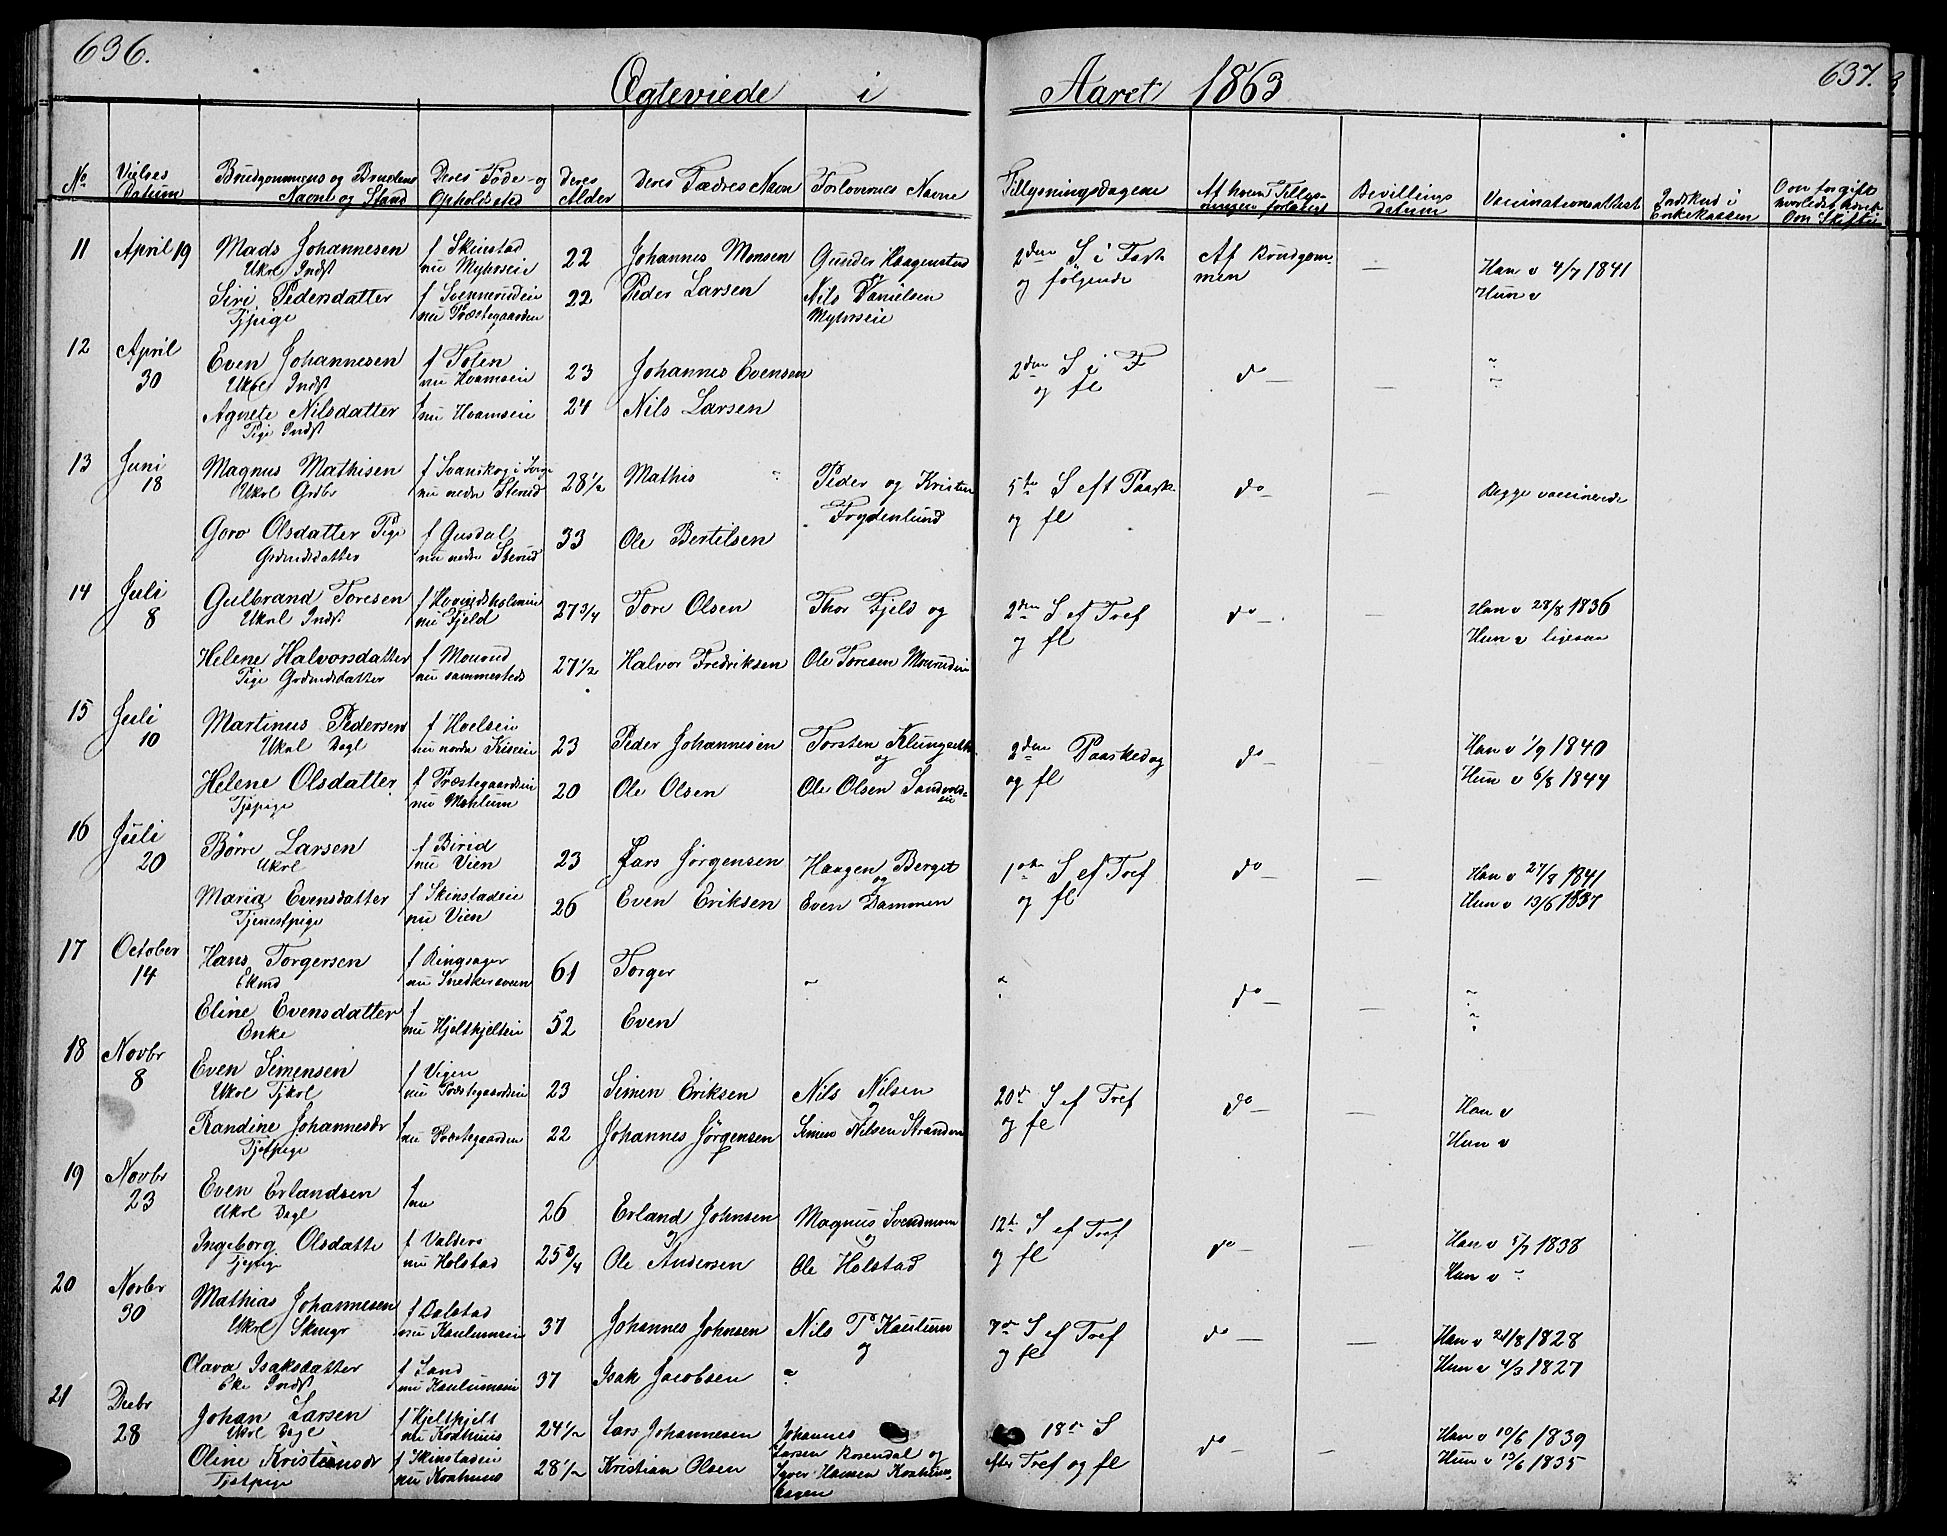 636.
Ægteviede i Aaret 1863
637.
No
Vielses Datum
Brudgommens og Brudens Navne og Stand
Deres Føde- og Opholdssted
Deres Alder
Deres Fædres Navn
Forlovernes Navne
Tillysningsdagene
Af hvem Tillysningen forlangt
Bevillings datum
Vaccinationsattest
Indskud i Enkekassen
Om forgift
Om Skifte
11 April 19 Mads Johannesen f Skinstad 22 Johannes Monsen Gunder Haagenstad 2den S i Fast Af Brudgom- — Han v 4/7 1841
Ukrl Indst nu Myhrseie og følgende men Hun v
Siri Pedersdatter f Svennerudeie 22 Peder Larsen Nils Danielsen
Tjpige nu Præstegaarden Myhrseie
12 April 30 Even Johannesen f Tolen 23 Johannes Evensen 2den S i F do — — "
Ukrl Indst nu Hvamseie og fl "
Agnete Nilsdatter f 24 Nils Larsen
Pige Indst nu Hvamseie
13 Juni 18 Magnus Mathisen f Svanskog i 28 1/2 Mathis " Peder og Kristen 5te S eft Paask do — — Begge vaccinerede
Ukrl Grdbr nu nedre Sterud Frydenlund og fl
Goro Olsdatter Pige f Gusdal 33 Ole Bertilsen
Grdmdsdatter nu nedre Sterud
14 Juli 8 Gulbrand Toresen f Hovindsholmeie 27 3/4 Tore Olsen Thor Fjeld og 2den S ef Tref do — — Han v 28/8 1836
Ukrl Indst nu Fjeld og fl Hun v ligesaa
Helene Halvorsdatter f Mourud 27 1/2 Halvor Fredriksen Ole Toresen Mourudeie
Pige Grdmdsdatter nu sammesteds
15 Juli 10 Martinus Pedersen f Hoelseie 23 Peder Johannesen Torsten 2den Paaskedag do — — Han v 1/9 1840
Ukrl Dagl nu nordre Kiseeie og og fl Hun v 6/8 1844
Helene Olsdatter f Præstegaardseie 20 Ole Olsen Ole Olsen Sandvold-
Tjspige nu Mæhlum eie
16 Juli 20 Børre Larsen f Birid 23 Lars Jørgensen Haagen Berget 1ste S ef Tref do — — Han v 27/8 1841
Ukrl nu Vien og og fl Hun v 13/6 1837
Maria Evensdatter f Skinstadeie 26 Even Eriksen Even Dammen
Tjenestpige nu Vien
17 October 14 Hans Torgersen f Ringsager 61 Torger " " do — — "
Ekmd nu Snedkersveen "
Eline Evensdatter f 52 Even
Enke nu Hjeltkjelteie
18 Novbr 8 Even Simensen f Vigen 23 Simen Eriksen Nils Nilsen 20de S ef Tref do — — Han v
Ukrl Tjkrl nu Præstegaardseie og og fl Hun v
Randine Johannesdr f 22 Johannes Jørgensen Simen Nilsen Stranden
Tjstpige nu Præstegaarden
19 Novbr 23 Even Erlandsen f 26 Erland Johnsen Magnus Svendmoen 12te S ef Tref do — — Han v 5/7 1838
Ukrl Dagl nu og og fl Han v "
Ingeborg Olsdatte f Valders 25 3/4 Ole Andersen Ole Holstad
Tjpige nu Holstad
20 Novbr 30 Mathias Johannesen f Dalstad 37 Johannes Johnsen Nils P Kaulum 7de S ef Tref do — — Han v 21/8 1828
Ukrl Skmgr nu Kaulumseie og og fl Hun v 4/3 1827
Olava Isaksdatter f Sand 37 Isak Jacobsen "
Eke Indst nu Kaulumseie
21 Decbr 28 Johan Larsen f Hjeltkjelt 24 1/2 Lars Johannesen Johannes 18de S do — — Han v 10/6 1839
Ukrl Dagl nu Korhuus Larsen Rosendal og efter Tref og fl Hun v 13/6 1835
Oline Kristiansdr f Skinstadeie 28 1/2 Kristian Olsen Syver Hansen Korhuus-
Tjstpige nu Korhuus hagen